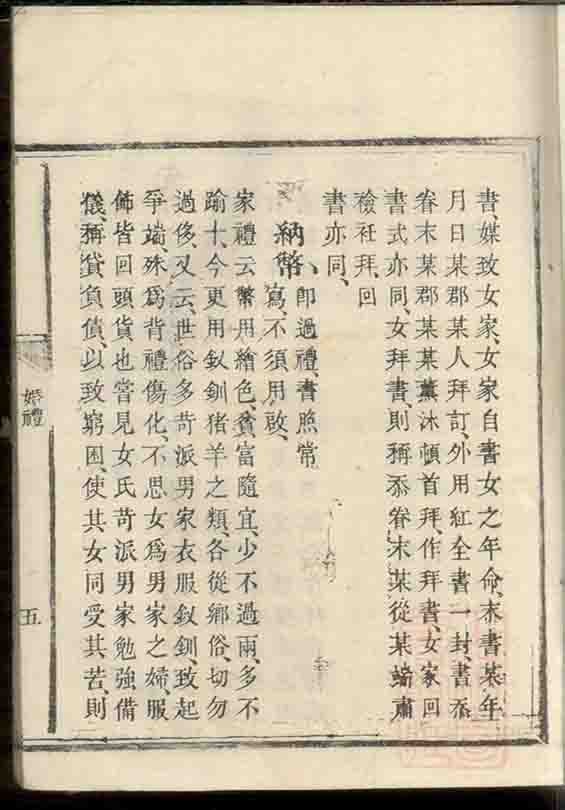 書、媒致女家、女家自書女之年命、末書某年
月日某郡某人拜訂、外用紅全書一封、書忝
眷末某郡某某薰沐頓首拜、作拜書、女家回
書式亦同、女拜書、則稱忝眷末某從某婦肅
襝衽拜、回
書亦同、
納幣、卽過禮、書照常
寫、不須用啟、
家禮云幣用繪色、貧富隨宜、少不過兩、多不
踰十、今更用釵釧猪羊之類、各從鄉俗、切勿
過侈、又云、世俗多苛派男家衣服釵釧、致起
爭端、殊爲背禮傷化、不思女爲男家之婦、服
飾皆回頭貨也、嘗見女氏苛派男家勉強備
儀、稱貸負債、以致窮困、使其女同受其苦、則
婚禮
五